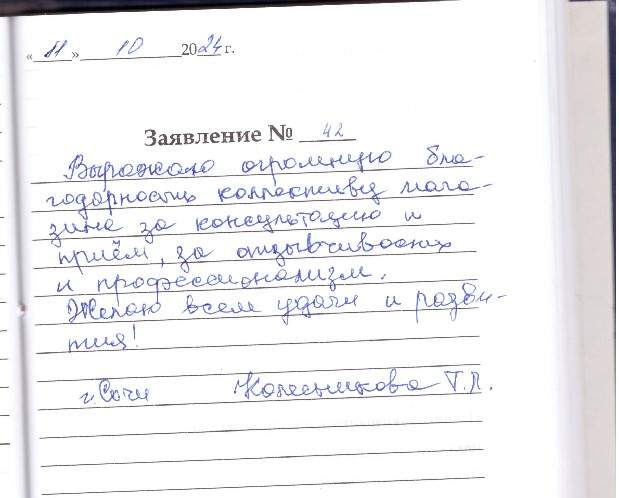 « 11 » 10 2024 г.
Заявление № 42
Выражаю огромную бла-
годарность коллективу мага-
зина за консультацию и
приём, за отзывчивость
и профессионализм.
Желаю всем удачи и разви-
тия!
г. Сочи Колесникова Т.П.